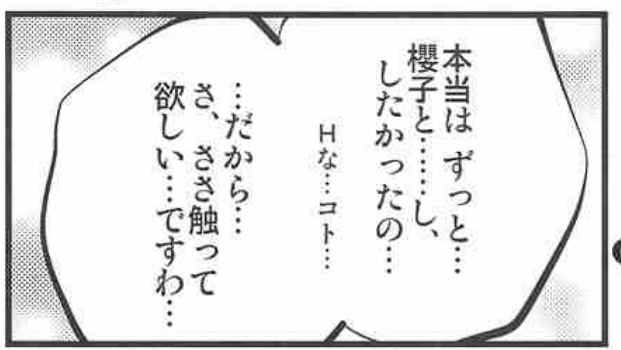 本当は ずっと…
櫻子と……し、
したかったの…
Hな…コト…
…だから…
さ、ささ触って
欲しい…ですわ…